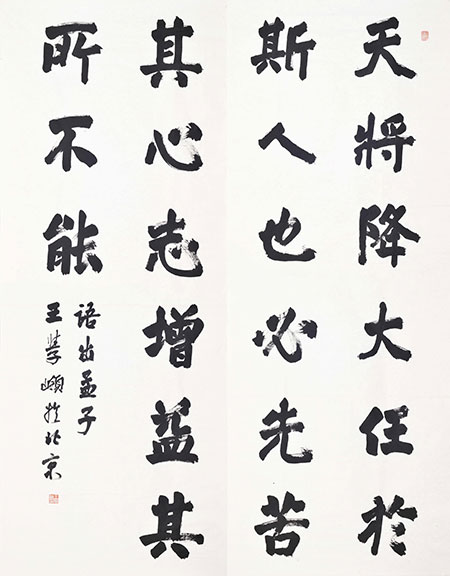 天將降大任於
斯人也必先苦
其心志增益其
所不能
语出孟子
王学岭於北京